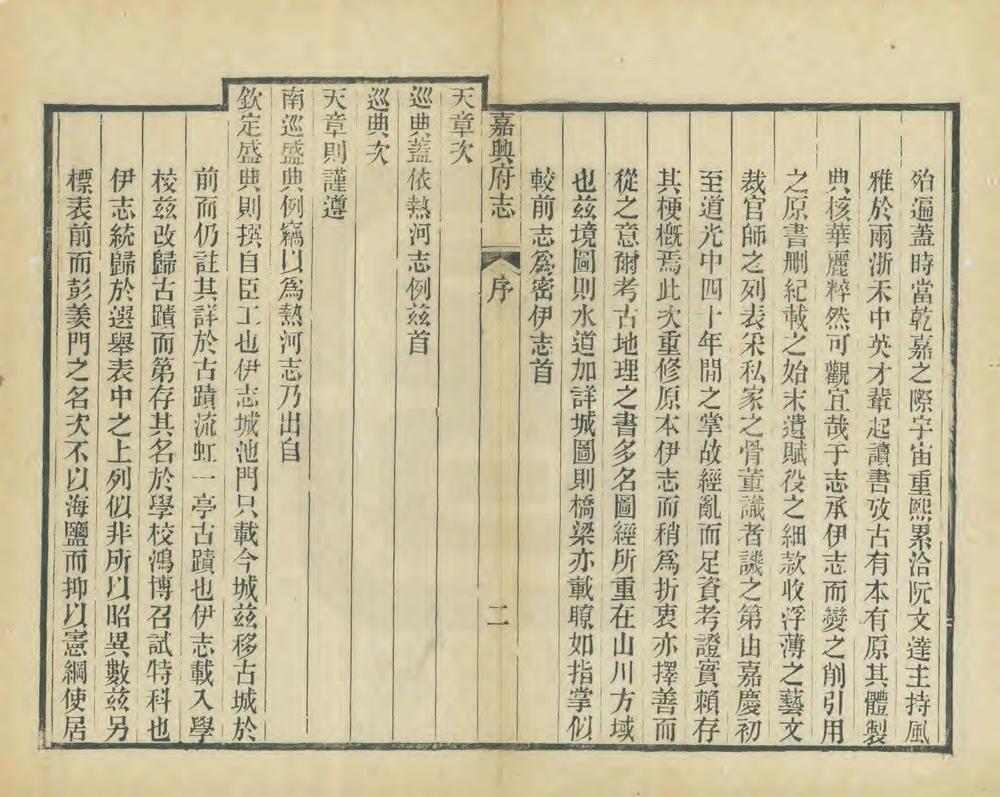 殆遍蓋時當乾嘉之際宇宙重熙累洽阮文達主持風
雅於兩浙禾中英才輩起讀書攷古有本有原其體製
典核華麗粹然可觀宜哉于志承伊志而變之削引用
之原書刪紀載之始末遺賦役之細款收浮薄之藝文
裁官師之列表采私家之骨董識者譏之第由嘉慶初
至道光中四十年閒之掌故經亂而足資考證實賴存
其梗概焉此次重修原本伊志而稍爲折衷亦擇善而
從之意爾考古地理之書多名圖經所重在山川方域
也茲境圖則水道加詳城圖則橋梁亦載瞭如指掌似
較前志爲密伊志首
嘉興府志 序 二
天章次
巡典蓋依熱河志例茲首
巡典次
天章則謹遵
南巡盛典例竊以爲熱河志乃出自
欽定盛典則撰自臣工也伊志城池門只載今城茲移古城於
前而仍註其詳於古蹟流虹一亭古蹟也伊志載入學
校茲改歸古蹟而第存其名於學校鴻博召試特科也
伊志統歸於選舉表中之上列似非所以昭異數茲另
標表前而彭羨門之名次不以海鹽而抑以憲綱使居